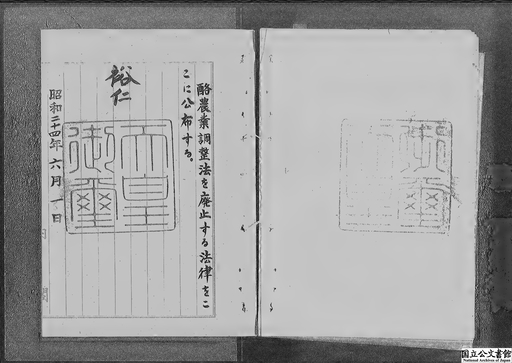 酪農業調整法を廃止する法律をこ
こに公布する。
裕仁
天皇御璽
昭和二十四年六月一日
国立公文書館
National Archives of Japan